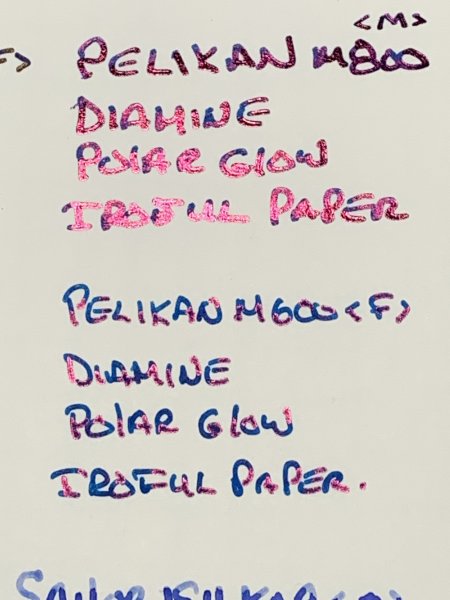 <M>
PELIKAN M800
DIAMINE
POLAR GLOW
IROFUL PAPER
PELIKAN M600 <F>
DIAMINE
POLAR GLOW
IROFUL PAPER.